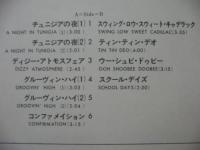 A—Side—B
チュニジアの夜(1) 1 スウィング・ロウ・スウィート・キャデラック
A NIGHT IN TUNISIA (1) (3:05) SWING LOW SWEET CADILLAC (3:05)
チュニジアの夜(2) 2 ティン・ティン・デオ
A NIGHT IN TUNISIA TIN TIN DEO
ディジー・アトモスフェア 3 ウー・シュビ・ドゥビー
DIZZY ATMOSPHERE OOH SHOOBEE DOOBEE
グルーヴィン・ハイ(1) 4 スクール・デイズ
GROOVIN' HIGH SCHOOL DAYS
グルーヴィン・ハイ(2) 5
GROOVIN' HIGH
コンファメイション 6
CONFIRMATION